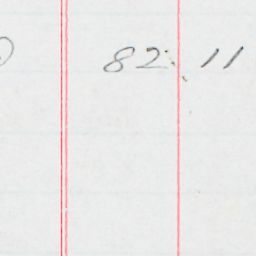 82 11